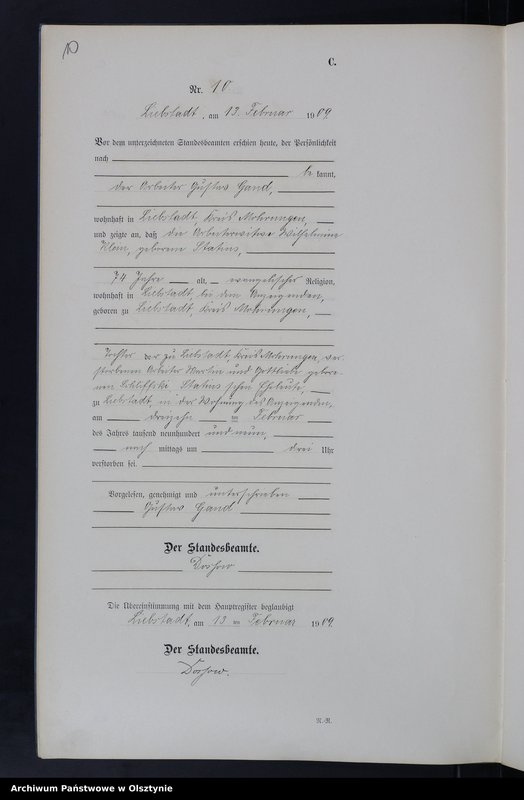 10
C.
Nr. 10
Liebstadt, am 13. Februar 1909
Vor dem unterzeichneten Standesbeamten erschien heute, der Persönlichkeit
nach
be kannt,
der Arbeiter Gustav Gand,
wohnhaft in Liebstadt, Kreis Mohrungen,
und zeigte an, daß die Arbeiterwitwe Wilhelmine
Klein, geborene Statius,
74 Jahre alt, evangelischer Religion,
wohnhaft in Liebstadt, bei dem Anzeigenden,
geboren zu Liebstadt, Kreis Mohrungen,
Tochter der zu Liebstadt, Kreis Mohrungen, ver-
storbenen Arbeiter Martin und Gottliebe gebore-
nen Statius'schen Eheleute,
zu Liebstadt, in der Wohnung des Anzeigenden,
am dreizehn ten Februar
des Jahres tausend neunhundert und neun,
nach mittags um drei Uhr
verstorben sei.
Vorgelesen, genehmigt und unterschrieben
Gustav Gand
Der Standesbeamte.
Die Übereinstimmung mit dem Hauptregister beglaubigt
Liebstadt, am 13 ten Februar 1909.
Der Standesbeamte.
N.-R.
Archiwum Państwowe w Olsztynie